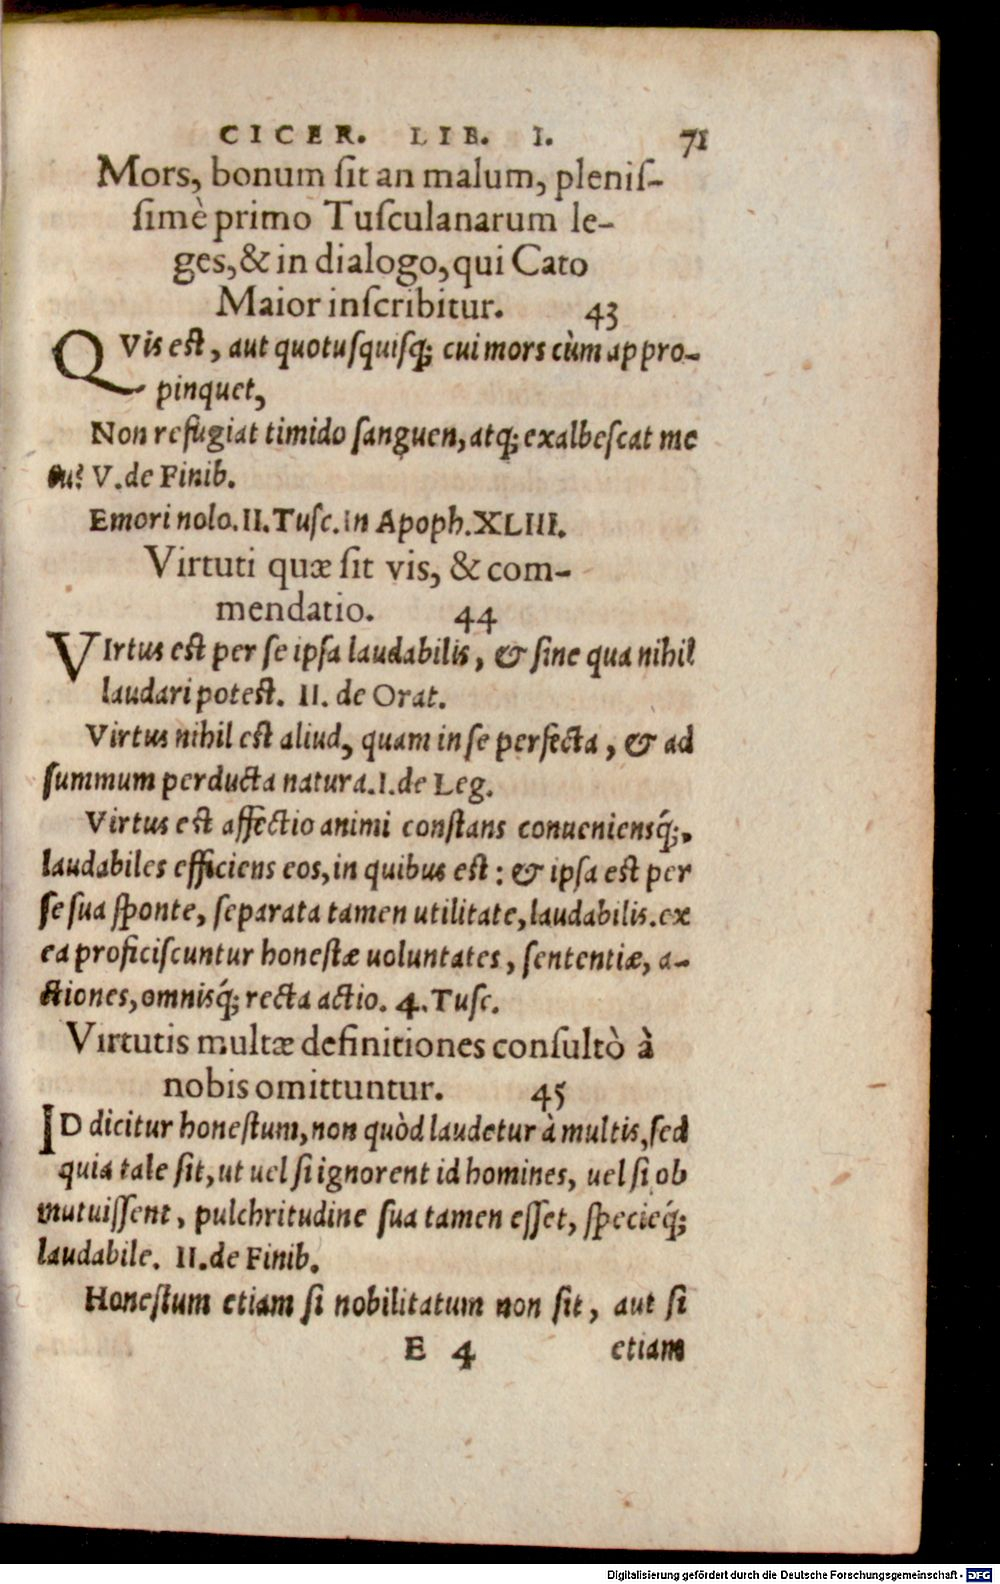 CICER. LIB. I. 71
Mors, bonum ſit an malum, pleniſ-
ſimè primo Tuſculanarum le-
ges, & in dialogo, qui Cato
Maior inſcribitur. 43
QVis est, aut quotuſquiſq; cui mors cùm appro-
pinquet,
Non refugiat timido ſanguen, atq; exalbeſcat me
tu? V. de Finib.
Emori nolo. II. Tuſc. In Apoph. XLIII.
Virtuti quæ ſit vis, & com-
mendatio. 44
VIrtus est per ſe ipſa laudabilis, & ſine qua nihil
laudari potest. II. de Orat.
Virtus nihil est aliud, quam in ſe perfecta, & ad
ſummum perducta natura. I. de Leg.
Virtus est affectio animi conſtans conueniensq́;,
laudabiles efficiens eos, in quibus est: & ipſa est per
ſe ſua ſponte, ſeparata tamen utilitate, laudabilis. ex
ea proficiſcuntur honeſtæ uoluntates, ſententiæ, a-
ctiones, omnisq́; recta actio. 4. Tuſc.
Virtutis multæ definitiones conſultò à
nobis omittuntur. 45
ID dicitur honeſtum, non quòd laudetur à multis, ſed
quia tale ſit, ut uel ſi ignorent id homines, uel ſi ob
mutuiſſent, pulchritudine ſua tamen eſſet, ſpecieq́;
laudabile. II. de Finib.
Honeſtum etiam ſi nobilitatum non ſit, aut ſi
E 4 etiam
Digitalisierung gefördert durch die Deutsche Forschungsgemeinschaft - DFG